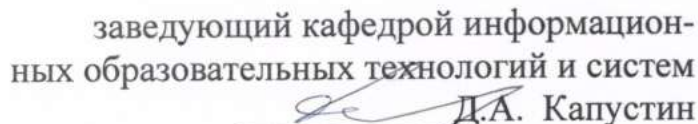 заведующий кафедрой информацион-
ных образовательных технологий и систем
Д.А. Капустин